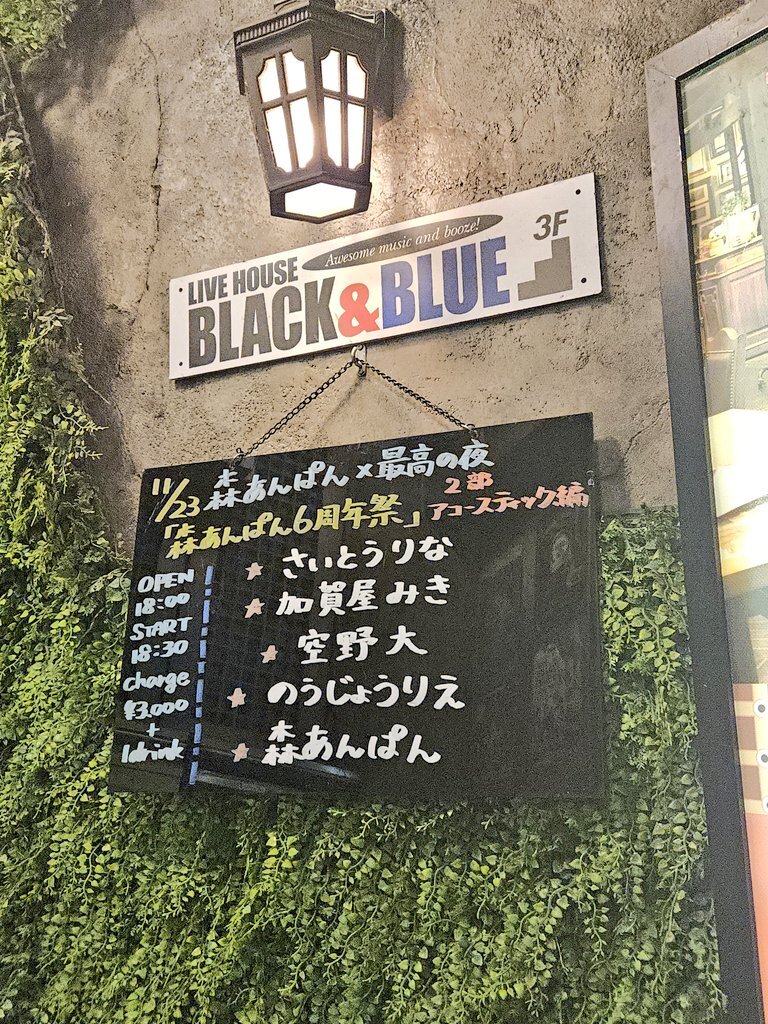 LIVE HOUSE
Awesome music and booze!
3F
BLACK&BLUE
11/23 森あんぱん×最高の夜
「森あんぱん6周年祭」2部
アコースティック編
OPEN
18:00
START
18:30
charge
¥3,000
+
1drink
★ さいとうりな
★ 加賀屋みき
★ 空野大
★ のうじょうりえ
★ 森あんぱん